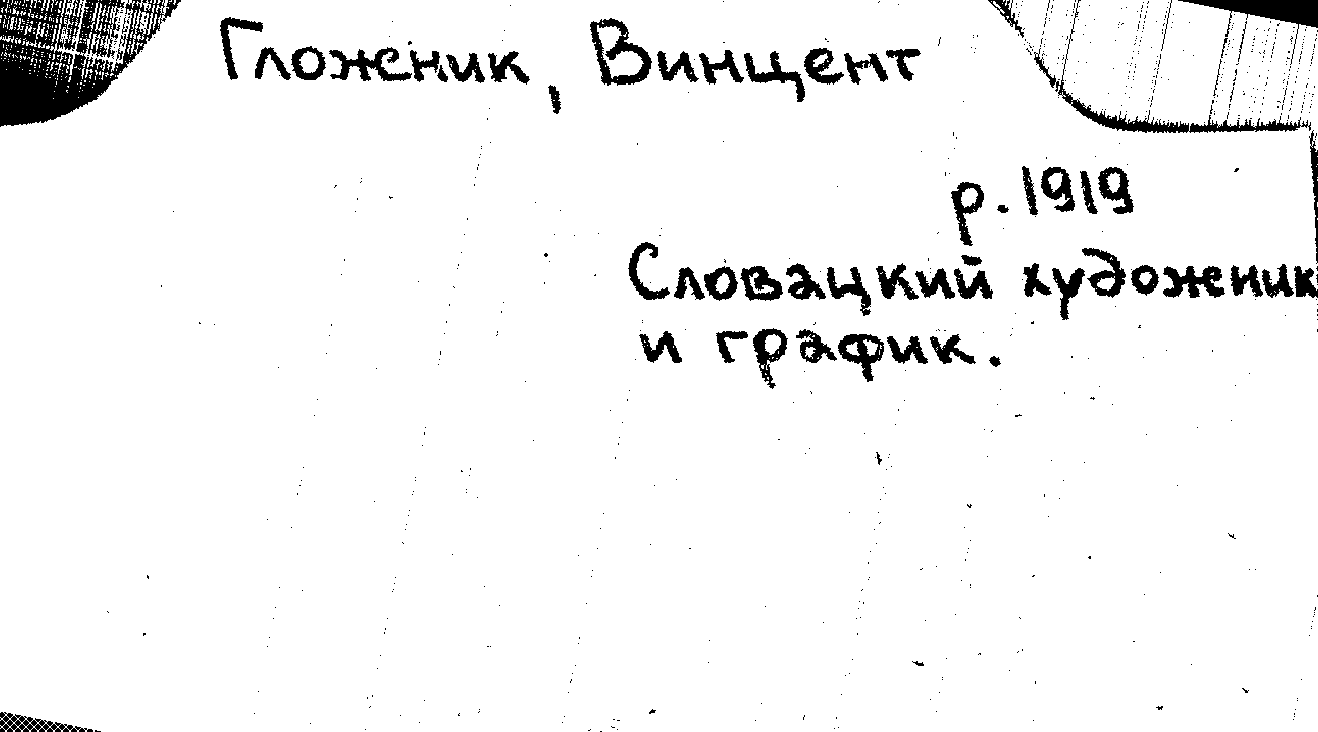 Гложеник, Винцент
р. 1919
Словацкий художник
и график.